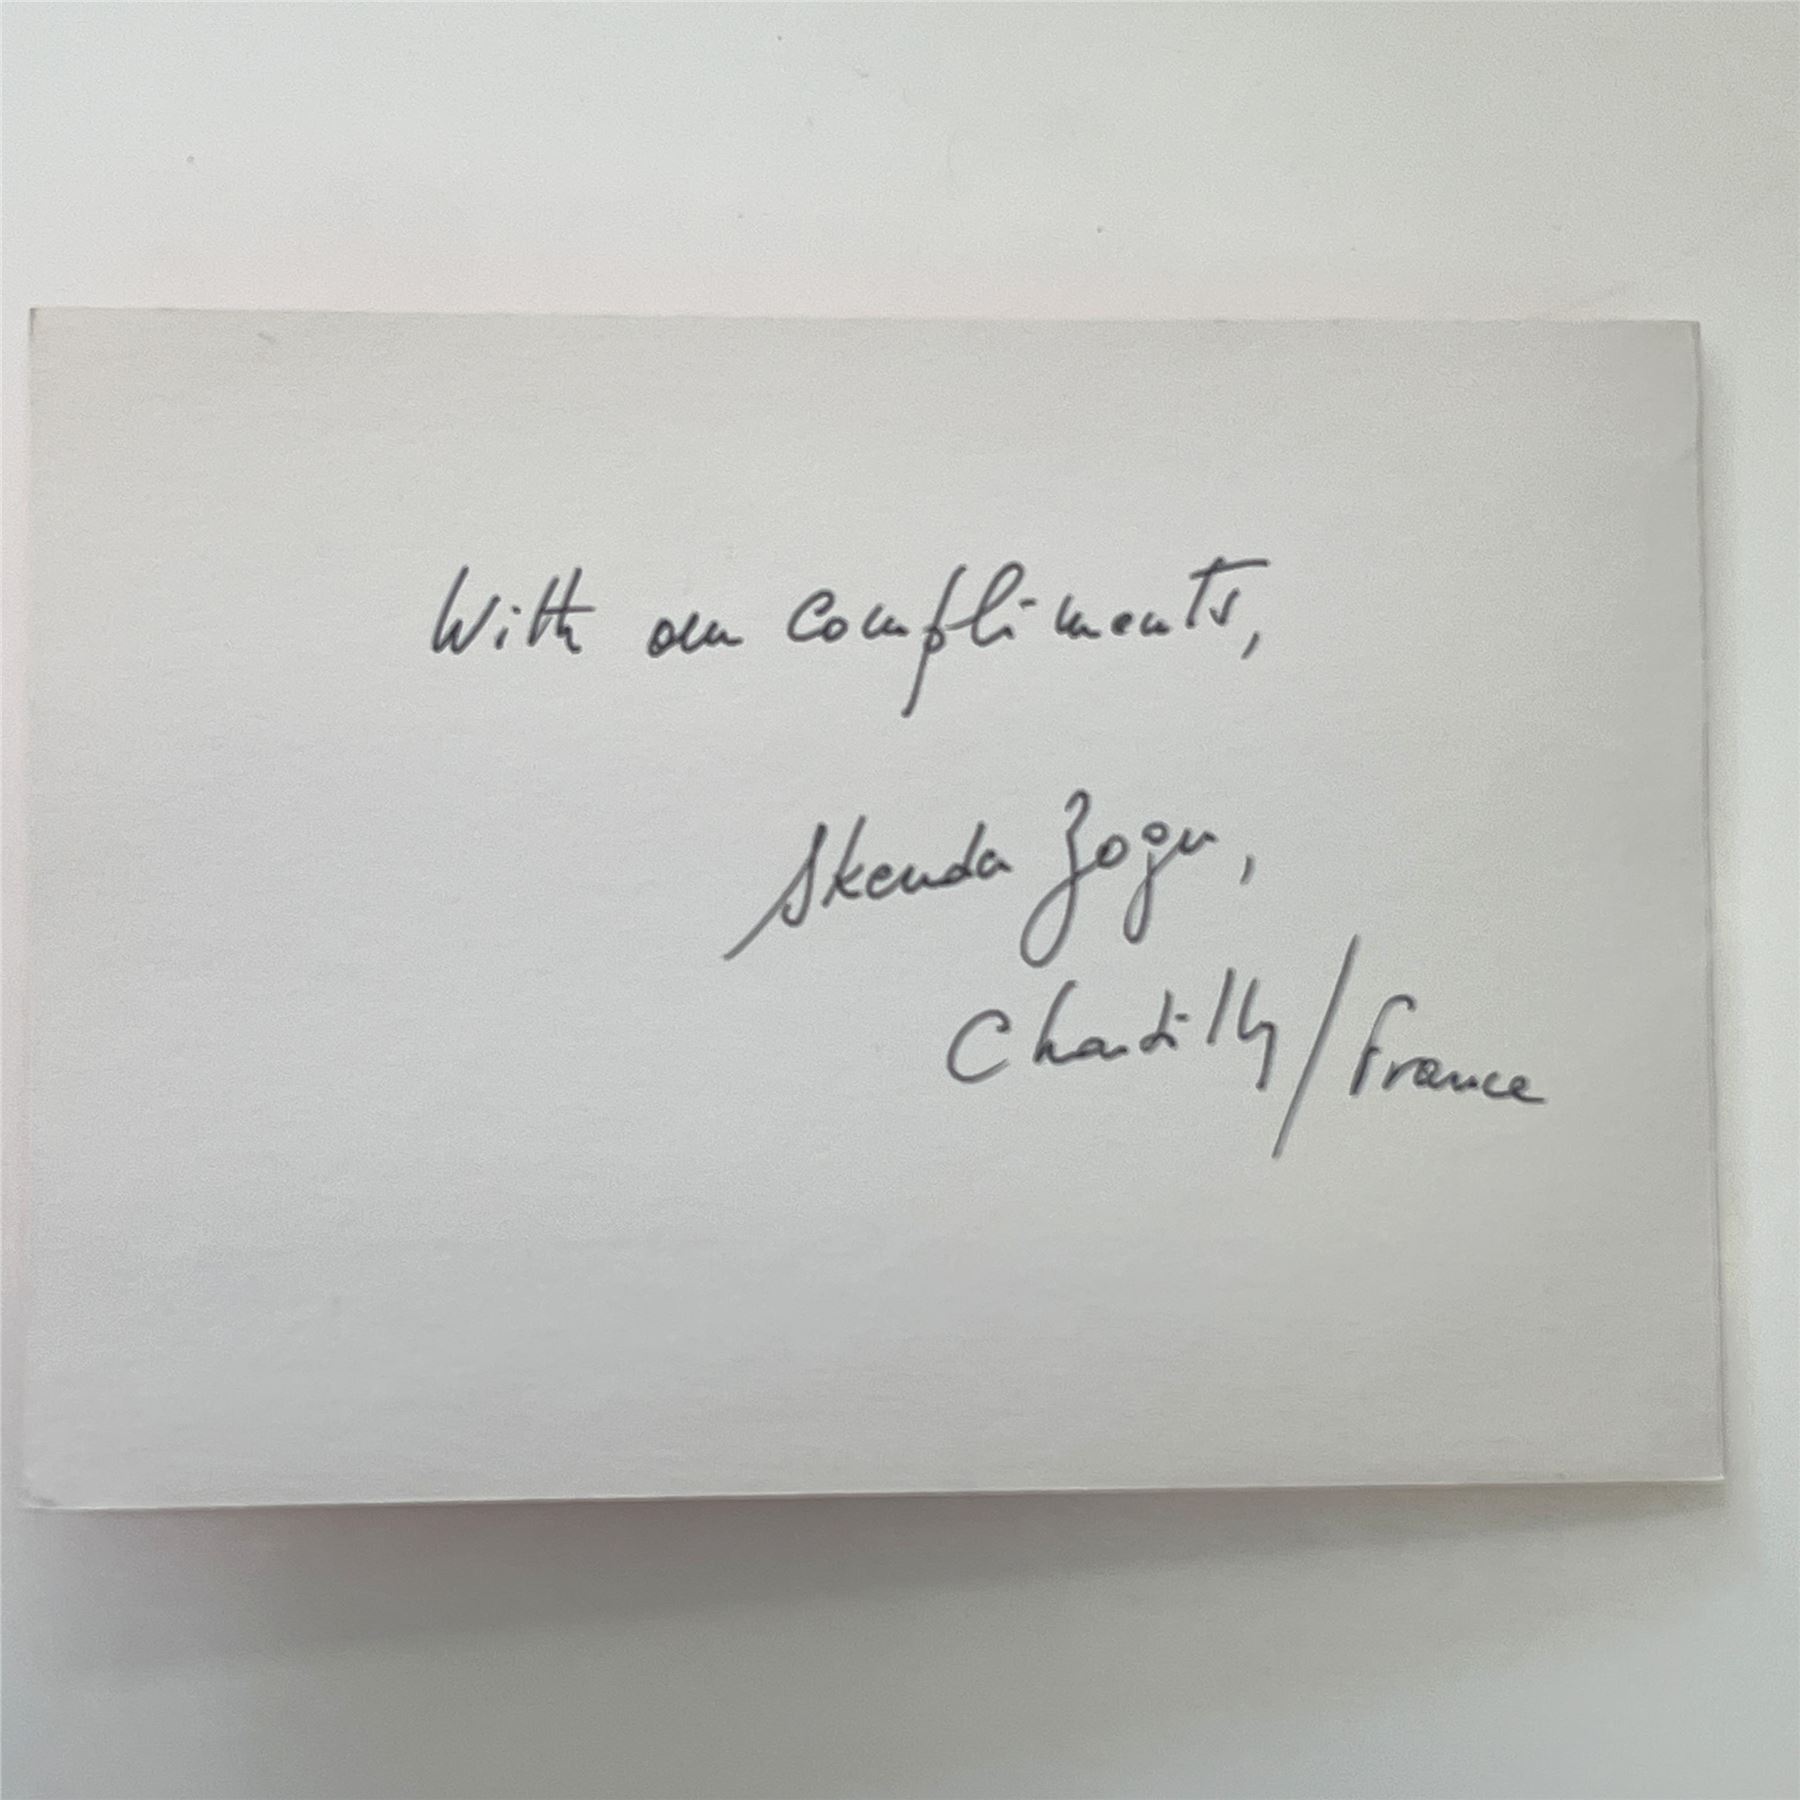 With our compliments,
Skenda Zogu,
Chantilly/France